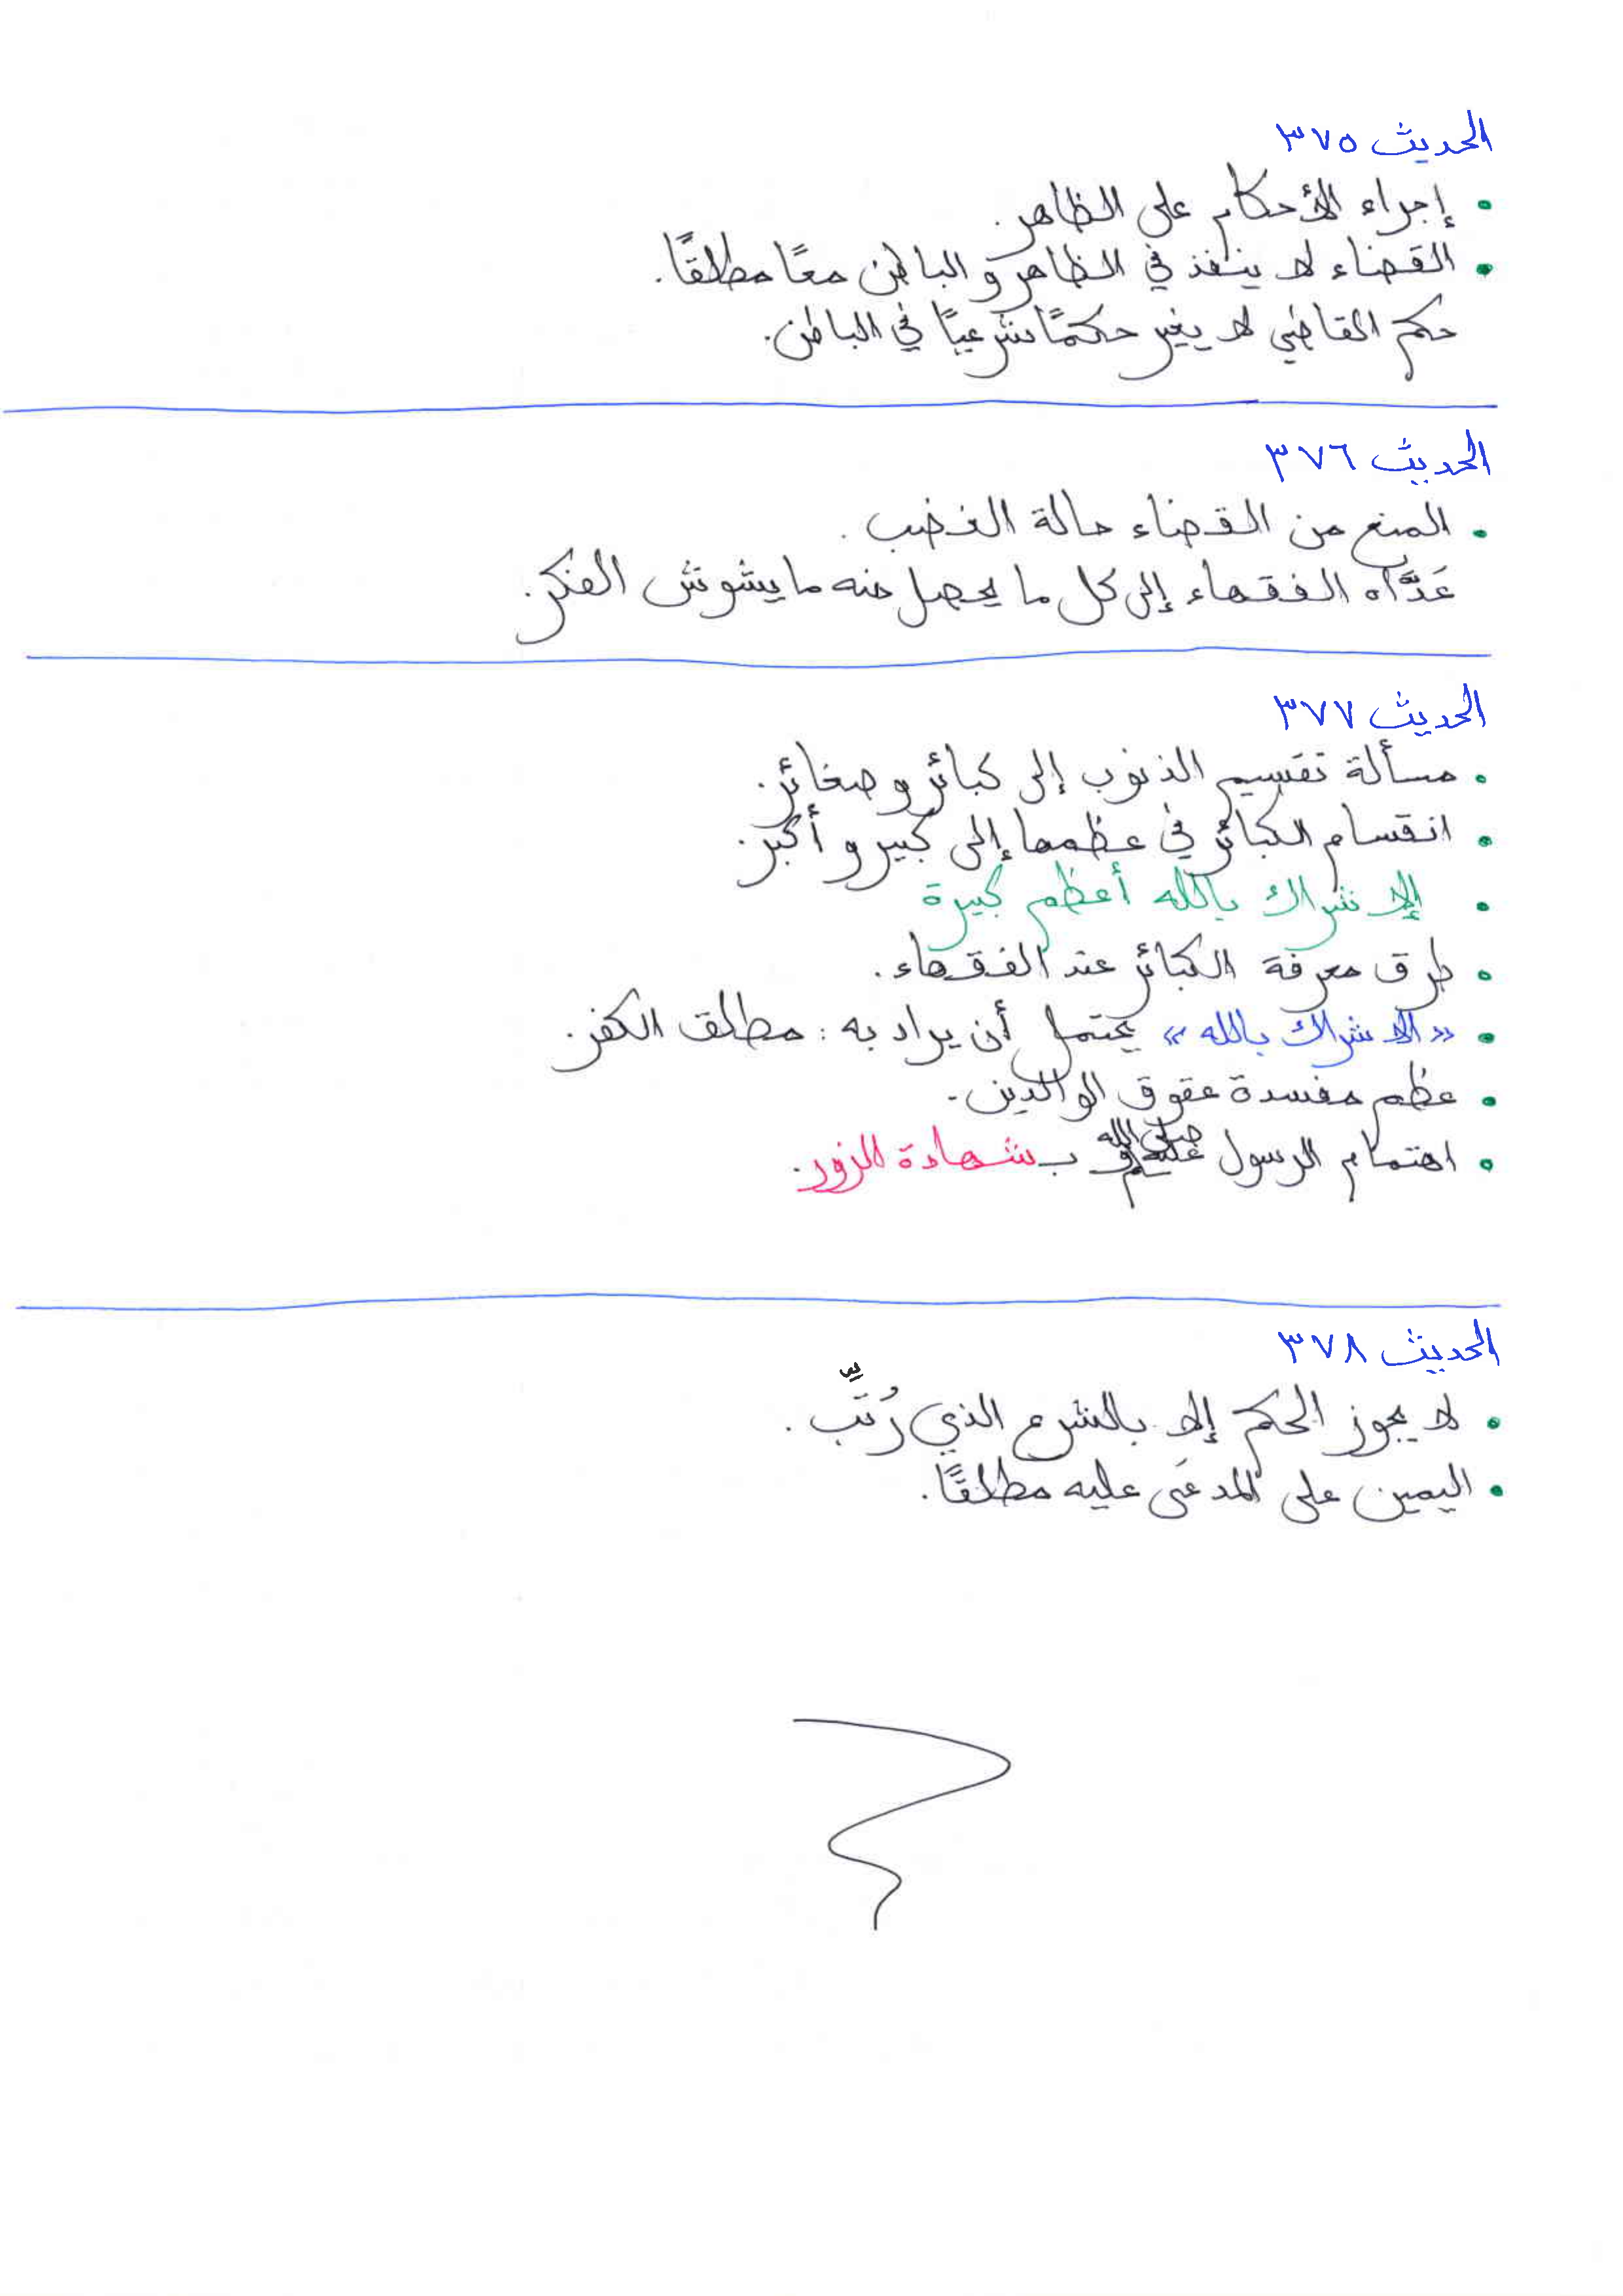 الحديث ٣٧٥
• إجراء الأحكام على الظاهر.
• القضاء لا ينفذ في الظاهر و الباطن معًا مطلقًا.
حكم القاضي لا يغير حكمًا شرعيًا في الباطن.
الحديث ٣٧٦
• المنع من القضاء حالة الغضب.
عَدَّاه الفقهاء إلى كل ما يحصل منه ما يشوش الفكر.
الحديث ٣٧٧
• مسألة تقسيم الذنوب إلى كبائر و صغائر.
• انقسام الكبائر في عظمها إلى كبير و أكبر.
• الإشراك بالله أعظم كبيرة
• طرق معرفة الكبائر عند الفقهاء.
• «الاشراك بالله» يحتمل أن يراد به: مطلق الكفر.
• عظم مفسدة عقوق الوالدين.
• اهتمام الرسول صلى الله عليه وسلم بشهادة الزور.
الحديث ٣٧٨
• لا يجوز الحكم إلا بالشرع الذي رُتِّب.
• اليمين على المدعَى عليه مطلقًا.